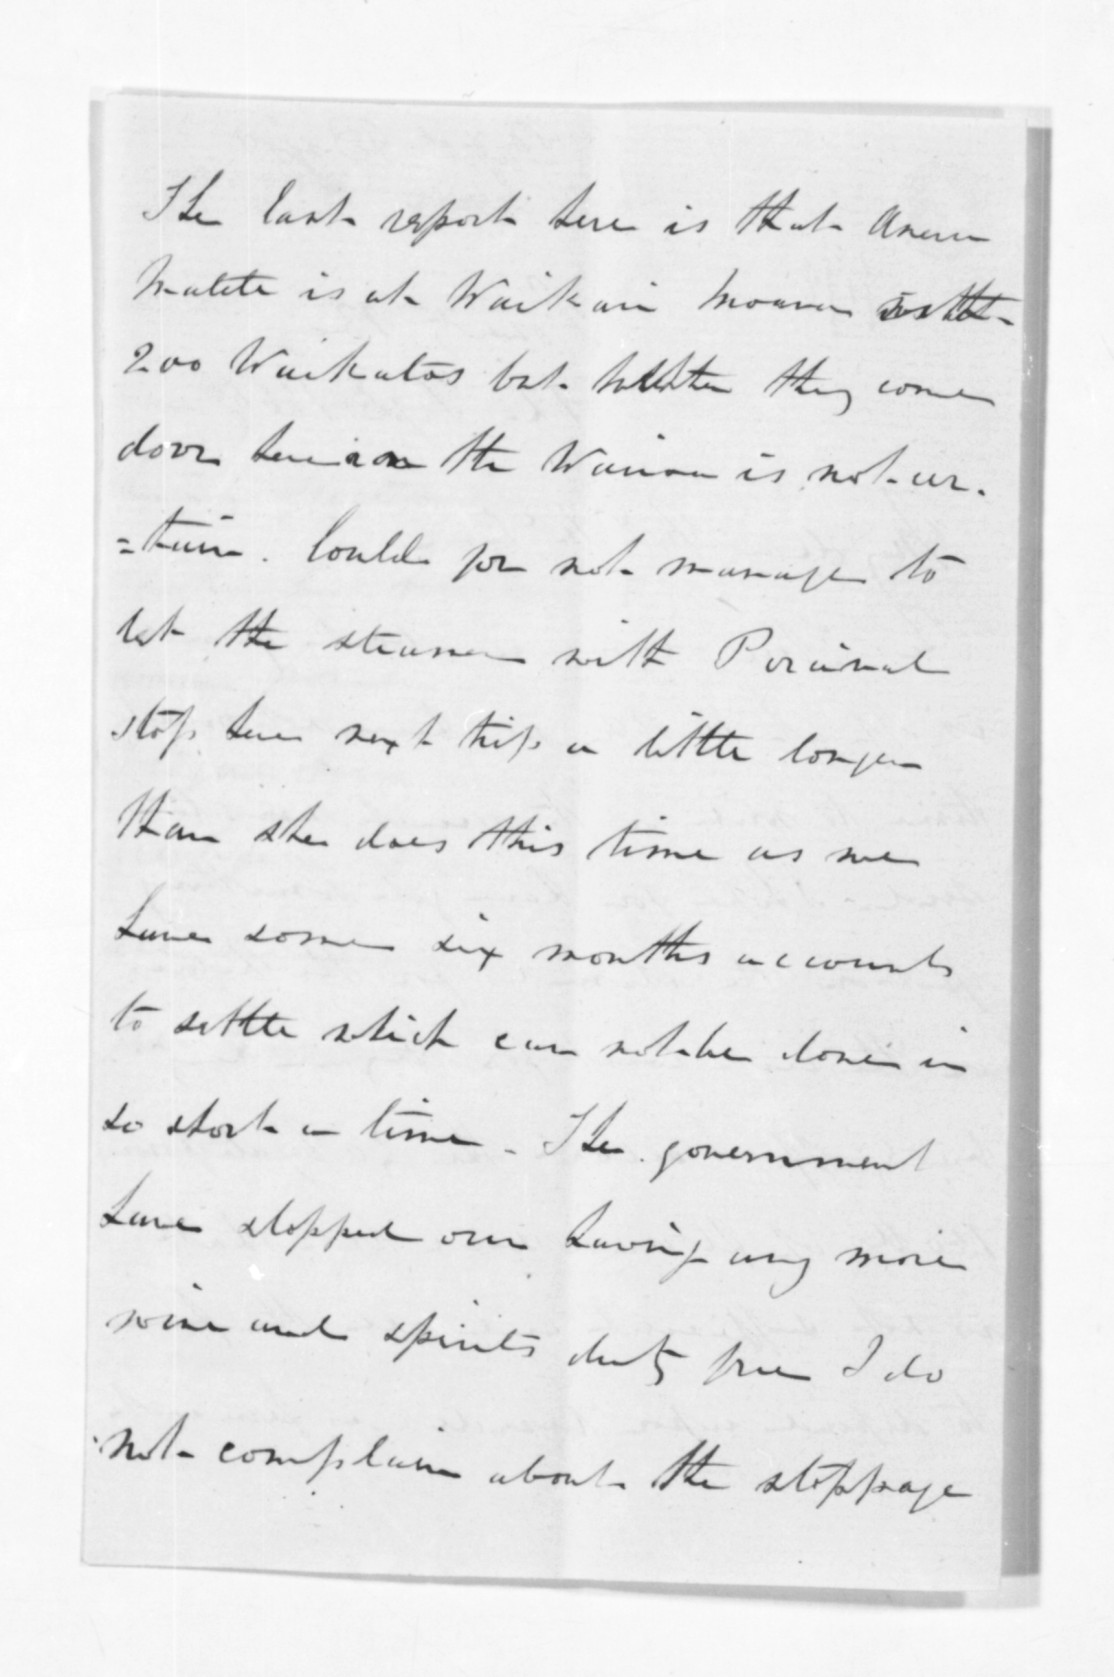 The last report here is that Aneru
Matete is at Waikari Moana with
200 Waikatos but whether they come
down here or the Wairoa is not cer-
=tain. Could you not manage to
let the steamer with Percival
stop here next trip a little longer
than she does this time as we
have some six months accounts
to settle which can not be done in
so short a time - The government
have stopped our having any more
wine and spirits duty free I do
not complain about the stoppage